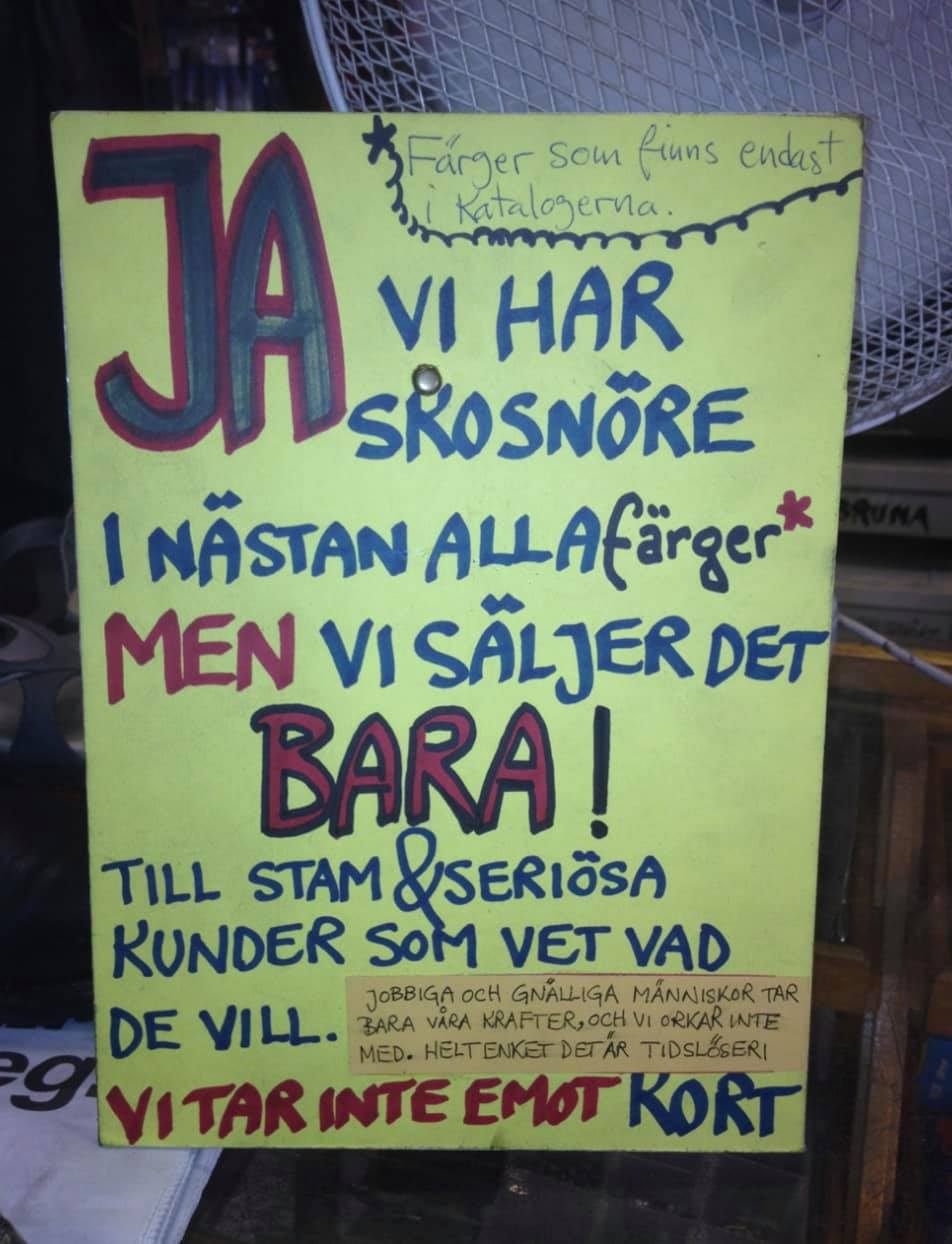 JA
* Färger som finns endast
i katalogerna.
VI HAR
SKOSNÖRE
I NÄSTAN ALLA färger*
MEN VI SÄLJER DET
BARA!
TILL STAM & SERIÖSA
KUNDER SOM VET VAD
DE VILL.
JOBBIGA OCH GNÄLLIGA MÄNNISKOR TAR
BARA VÅRA KRAFTER, OCH VI ORKAR INTE
MED. HELT ENKET DET ÄR TIDSLÖSERI
VI TAR INTE EMOT KORT
BRUNA